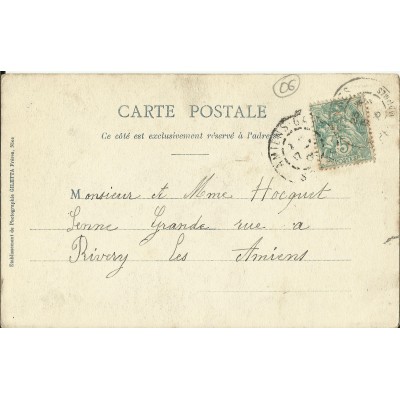 06
CARTE POSTALE
Ce côté est exclusivement réservé à l'adresse
AMIENS GA
5
Monsieur et Mme Hocquet
Senne Grande rue a
Rivery les Amiens
Etablissement de Photographie GILETTA Frères, Nice